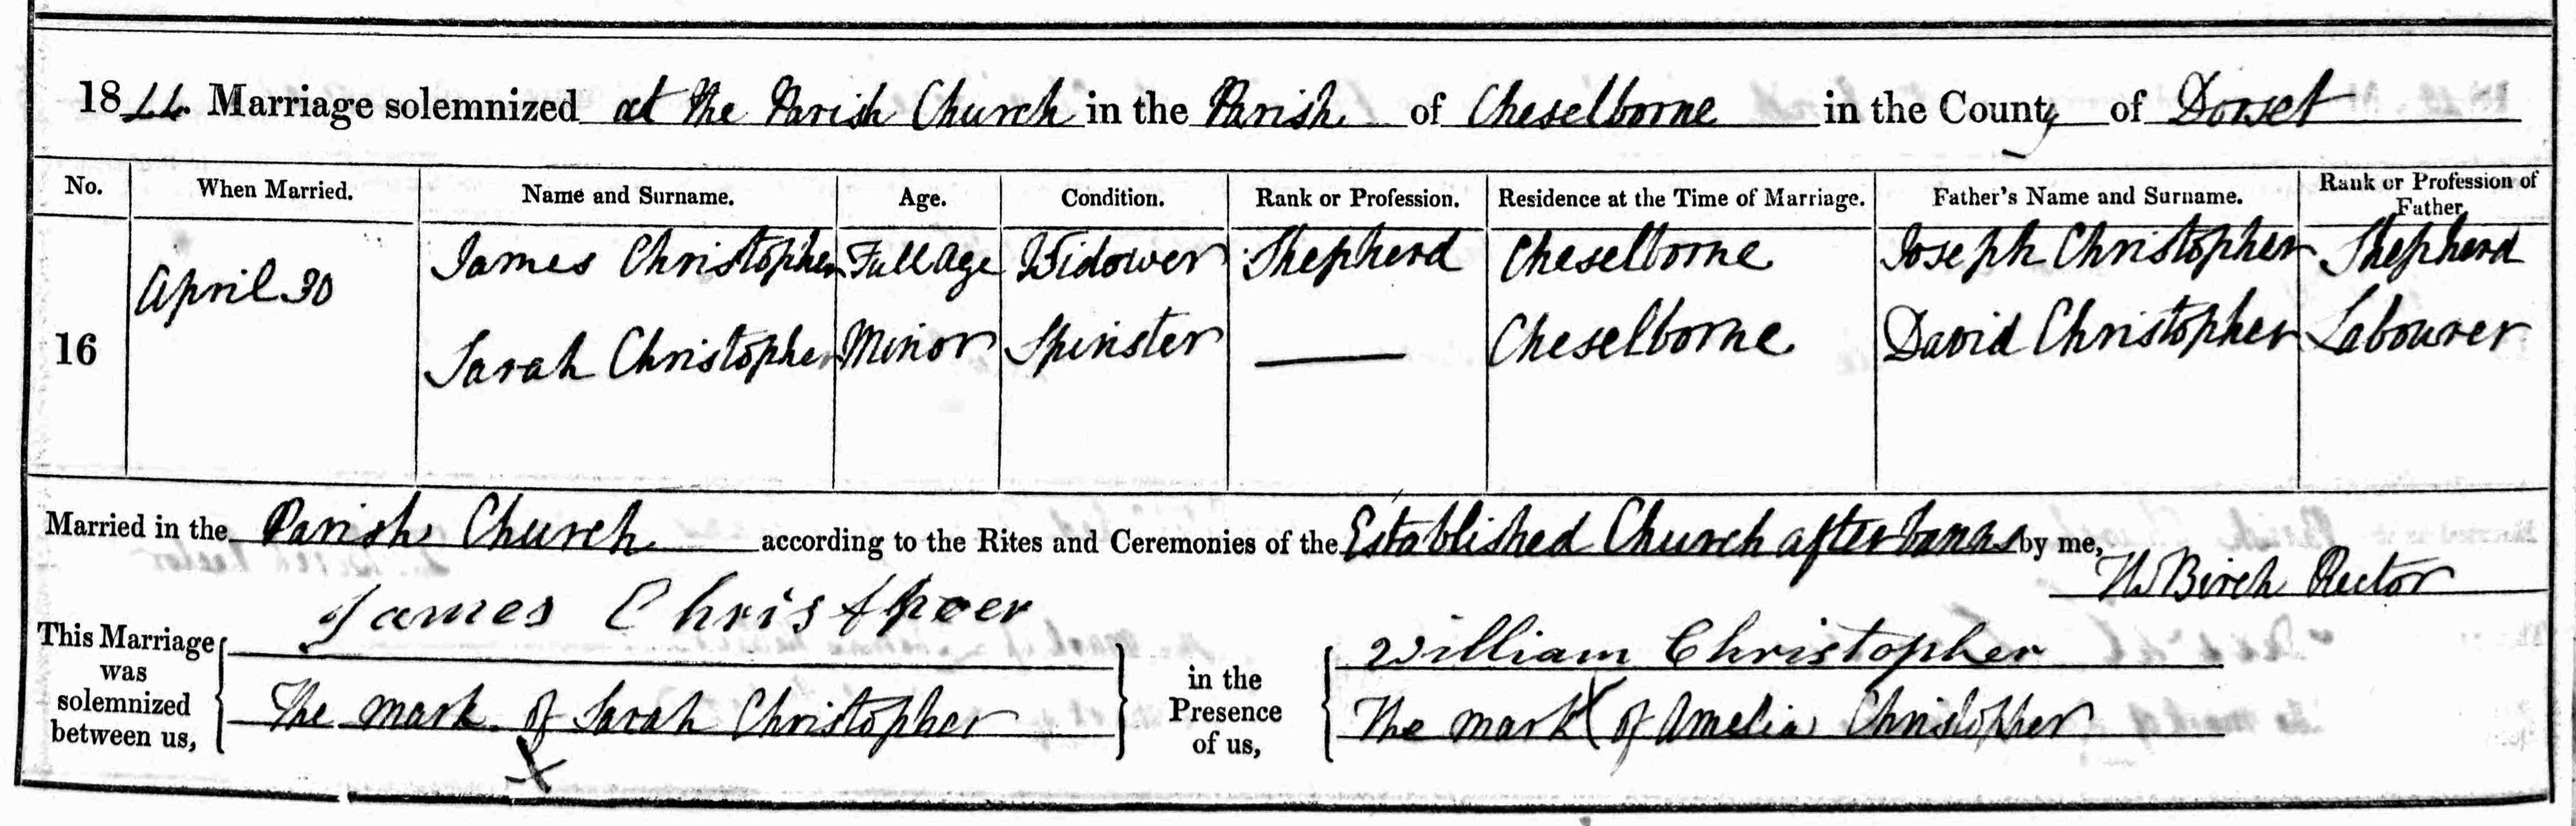 1844. Marriage solemnized at the Parish Church in the Parish of Cheselborne in the County of Dorset
No. When Married. Name and Surname. Age. Condition. Rank or Profession. Residence at the Time of Marriage. Father's Name and Surname. Rank or Profession of Father
16 April 30 James Christopher Full Age Widower Shepherd Cheselborne Joseph Christopher Shepherd
16 Sarah Christopher Minor Spinster Cheselborne David Christopher Labourer
Married in the Parish Church according to the Rites and Ceremonies of the Established Church after banns by me,
Birch Rector
This Marriage was solemnized between us,
James
The mark of Sarah Christopher
X
in the Presence of us,
William Christopher
The mark X of Amelia Christopher